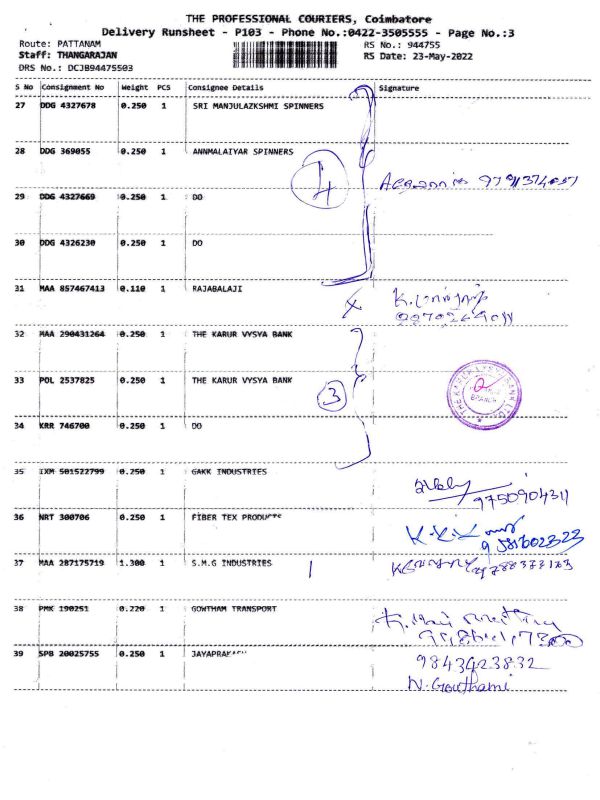 THE PROFESSIONAL COURIERS, Coimbatore
Delivery Runsheet - P103 - Phone No.:0422-3505555 - Page No.:3
Route: PATTANAM RS No.: 944755
Staff: THANGARAJAN RS Date: 23-May-2022
DRS No.: DCJB94475503
S No Consignment No Weight PCS Consignee Details Signature
27 DDG 4327678 0.250 1 SRI MANJULAZKSHMI SPINNERS
28 DDG 369055 0.250 1 ANNMALAIYAR SPINNERS
4
29 DDG 4327669 0.250 1 DO
30 DDG 4326230 0.250 1 DO
31 MAA 857467413 0.110 1 RAJABALAJI
32 MAA 290431264 0.250 1 THE KARUR VYSYA BANK
33 POL 2537825 0.250 1 THE KARUR VYSYA BANK
3
34 KRR 746700 0.250 1 DO
35 IXM 501522799 0.250 1 GAKK INDUSTRIES
9750904311
36 NRT 300706 0.250 1 FIBER TEX PRODUCTS
9581602323
37 MAA 287175719 1.300 1 S.M.G INDUSTRIES
38 PMK 190251 0.220 1 GOWTHAM TRANSPORT
39 SPB 20025755 0.250 1 JAYAPRAKASH
9843423832
N. Gowthami